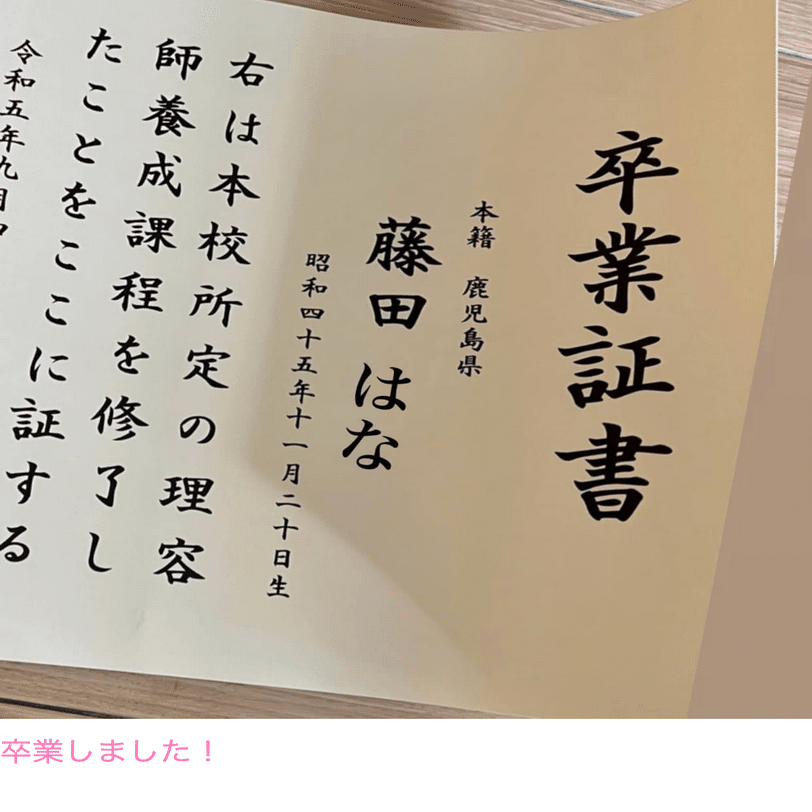 卒業証書
本籍 鹿児島県
藤田 はな
昭和四十五年十一月二十日生
右は本校所定の理容
師養成課程を修了し
たことをここに証する
令和五年九月
卒業しました！